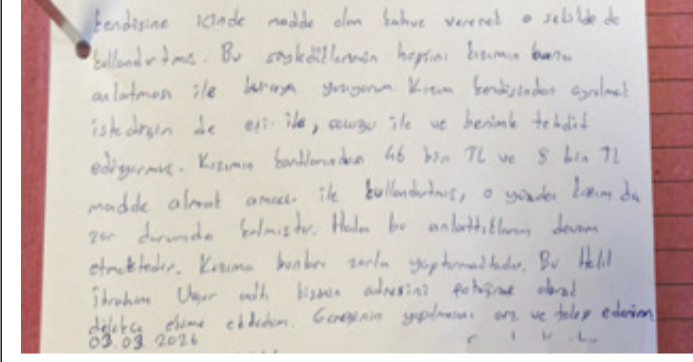 kendisine içinde madde olan kahve vererek o şekilde de
kullandırtmış. Bu söylediklerimin hepsini kızımın bana
anlatması ile buraya yazıyorum. Kızım kendisinden ayrılmak
istediğin de eşi ile, çocuğu ile ve benimle tehdit
ediyormuş. Kızımın kartlarından 46 bin TL ve 8 bin TL
madde almak amacı ile kullandırtmış, o yüzden kızım da
zor durumda kalmıştır. Halen bu anlattıklarım devam
etmektedir. Kızıma bunları zorla yaptırmaktadır. Bu Halil
İbrahim Uğur adlı kişinin adresini
dilekçe ekime ekledim. Gereğinin yapılmasını arz ve talep ederim
03.03.2026